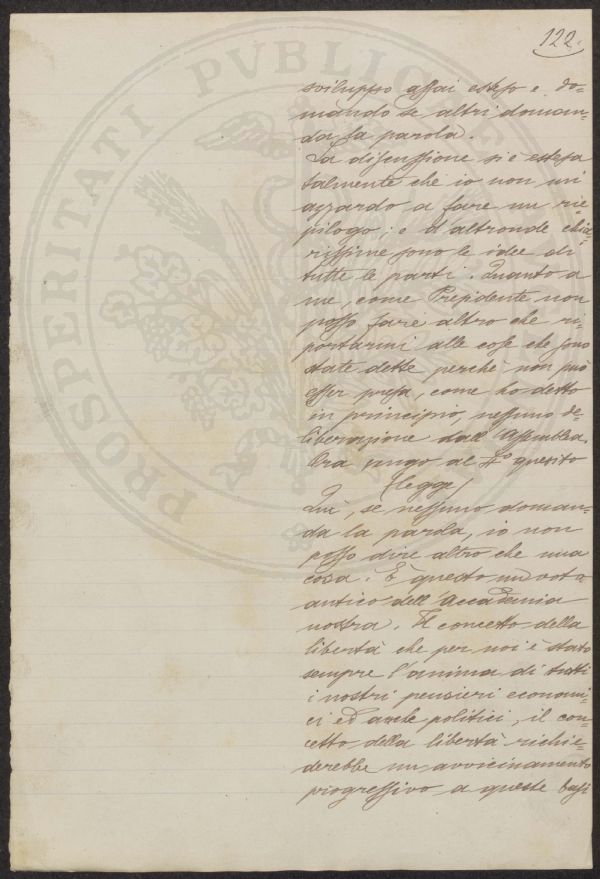 122.
sviluppo assai esteso e do=
mando se altri doman=
da la parola.
La discussione si è estesa
talmente che io non mi
azzardo a fare un rie=
pilogo; e d'altronde chia=
rissime sono le idee di
tutte le parti. Quanto a
me, come Presidente non
posso fare altro che ri=
portarmi alle cose che sono
state dette perchè non può
esser presa, come ho detto
in principio, nessuna de=
liberazione dall'Assemblea.
Ora pongo al 4º quesito
(legge)
Qui, se nessuno doman=
da la parola, io non
posso dire altro che una
cosa. È questo un voto
antico dell'Accademia
nostra. Il concetto della
libertà che per noi è stato
sempre l'anima di tutti
i nostri pensieri economi=
ci ed anche politici, il con=
cetto della libertà richie=
derebbe un avvicinamento
progressivo a queste basi
PROSPERITATI PVBLICAE